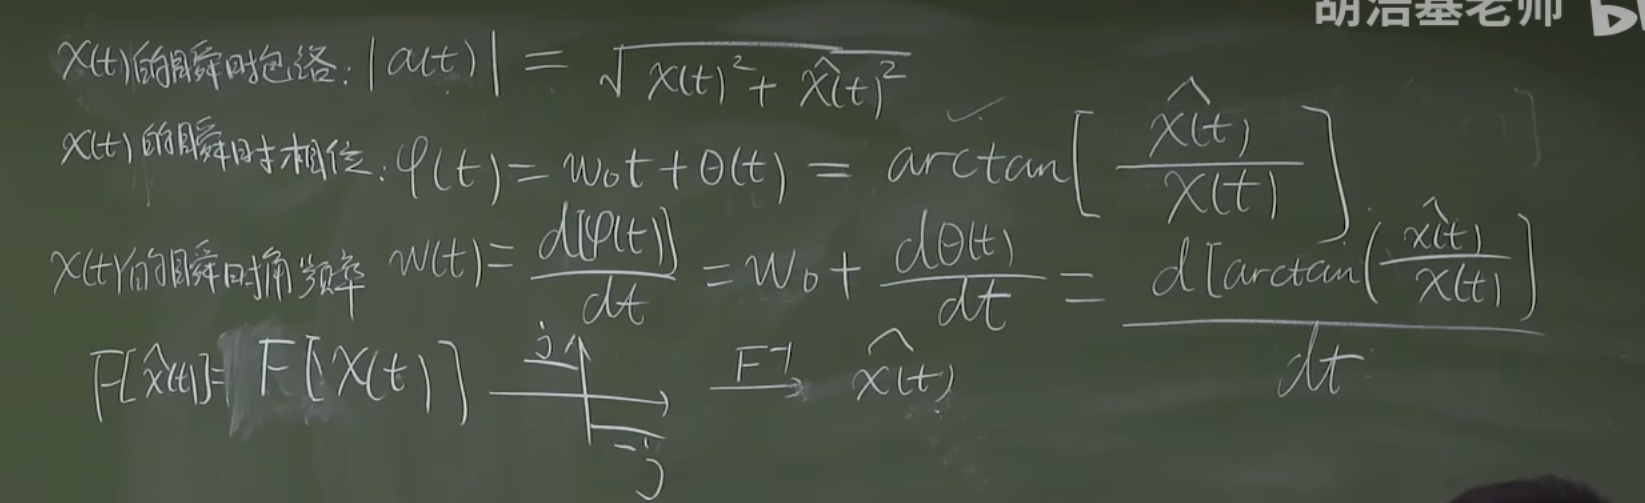 胡浩基老师
x(t)的瞬时包络: |a(t)| = √(x(t)² + x̂(t)²)
x(t)的瞬时相位: φ(t) = w₀t + θ(t) = arctan[x̂(t)/x(t)]
x(t)的瞬时角频率 w(t) = d[φ(t)]/dt = w₀ + dθ(t)/dt = d[arctan(x̂(t)/x(t)]/dt
F[x̂(t)] = F[x(t)] j -j F⁻¹→ x̂(t)